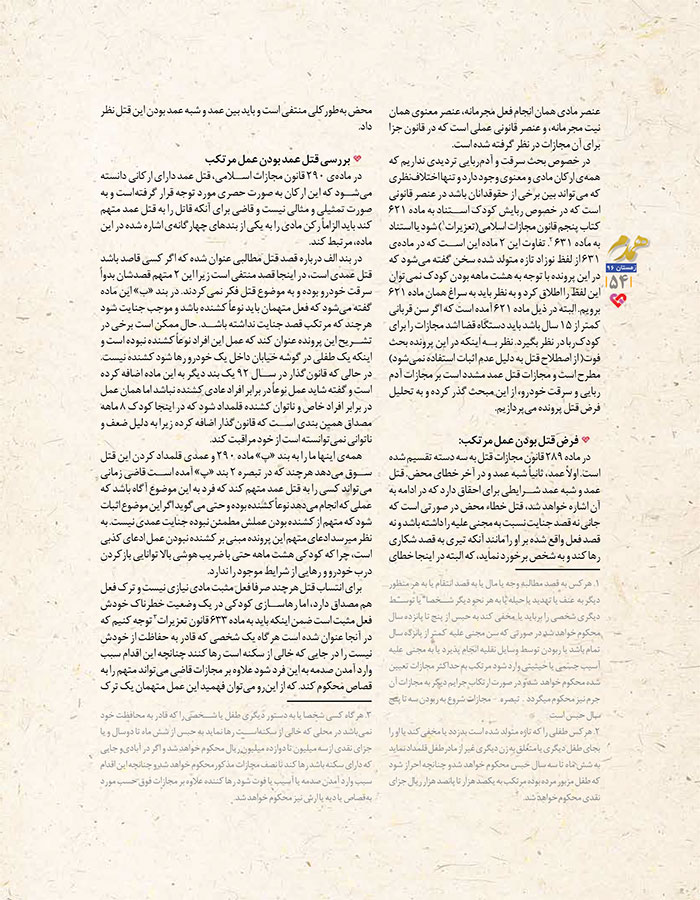 عنصر مادی همان انجام فعل مجرمانه، عنصر معنوی همان
نیت مجرمانه، و عنصر قانونی عملی است که در قانون جزا
برای آن مجازات در نظر گرفته شده است.
در خصوص بحث سرقت و آدم‌ربایی تردیدی نداریم که
همه‌ی ارکان مادی و معنوی وجود دارد و تنها اختلاف‌نظری
که می‌تواند بین برخی از حقوقدانان باشد در عنصر قانونی
است که در خصوص ربایش کودک استناد به ماده ۶۲۱
کتاب پنجم قانون مجازات اسلامی(تعزیرات۱) شود یا استناد
به ماده ۶۳۱ ۲. تفاوت این ۲ ماده این است که در ماده‌ی
۶۳۱ از لفظ نوزاد تازه متولد شده سخن گفته می‌شود که
در این پرونده با توجه به هشت ماهه بودن کودک نمی‌توان
این لفظ را اطلاق کرد و به نظر باید به سراغ همان ماده ۶۲۱
برویم. البته در ذیل ماده ۶۲۱ آمده است که اگر سن قربانی
کمتر از ۱۵ سال باشد باید دستگاه قضا اشد مجازات را برای
کودک‌ربا در نظر بگیرد. نظر به اینکه در این پرونده بحث
فوت(از اصطلاح قتل به دلیل عدم اثبات استفاده نمی‌شود)
مطرح است و مجازات قتل عمد مشدد است بر مجازات آدم
ربایی و سرقت خودرو، از این مبحث گذر کرده و به تحلیل
فرض قتل پرونده می‌پردازیم.
فرض قتل بودن عمل مرتکب:
در ماده ۲۸۹ قانون مجازات قتل به سه دسته تقسیم شده
است. اولاً عمد، ثانیاً شبه عمد و در آخر خطای محض. قتل
عمد و شبه عمد شرایطی برای احقاق دارد که در ادامه به
آن اشاره خواهد شد، قتل خطاء محض در صورتی است که
جانی نه قصد جنایت نسبت به مجنی علیه را داشته باشد و نه
قصد فعل واقع شده بر او را مانند آنکه تیری به قصد شکاری
رها کند و به شخص برخورد نماید، که البته در اینجا خطای
۱. هر کس به قصد مطالبه وجه یا مال یا به قصد انتقام یا به هر منظور
دیگر به عنف یا تهدید یا حیله یا به هر نحو دیگر شخصا" یا توسط
دیگری شخصی را برباید یا مخفی کند به حبس از پنج تا پانزده سال
محکوم خواهد شد در صورتی که سن مجنی علیه کمتر از پانزده سال
تمام باشد یا ربودن توسط وسایل نقلیه انجام پذیرد یا به مجنی علیه
آسیب جسمی یا حیثیتی وارد شود مرتکب به حداکثر مجازات تعیین
شده محکوم خواهد شد و در صورت ارتکاب جرایم دیگر به مجازات آن
جرم نیز محکوم میگردد . تبصره - مجازات شروع به ربودن سه تا پنج
سال حبس است
۲. هر کس طفلی را که تازه متولد شده است بدزدد یا مخفی کند یا او را
بجای طفل دیگری یا متعلق به زن دیگری غیر از مادر طفل قلمداد نماید
به شش ماه تا سه سال حبس محکوم خواهد شد و چنانچه احراز شود
که طفل مزبور مرده بوده مرتکب به یکصد هزار تا پانصد هزار ریال جزای
نقدی محکوم خواهد شد.
همدم
زمستان ۹۶
۵۴
محض به‌طور کلی منتفی است و باید بین عمد و شبه عمد بودن این قتل نظر
داد.
بررسی قتل عمد بودن عمل مرتکب
در ماده‌ی ۲۹۰ قانون مجازات اسلامی، قتل عمد دارای ارکانی دانسته
می‌شود که این ارکان به صورت حصری مورد توجه قرار گرفته‌است و به
صورت تمثیلی و مثالی نیست و قاضی برای آنکه قاتل را به قتل عمد متهم
کند باید الزاماً رکن مادی را به یکی از بندهای چهارگانه‌ی اشاره شده در این
ماده، مرتبط کند.
در بند الف درباره قصد قتل مطالبی عنوان شده که اگر کسی قاصد باشد
قتل عمدی است، در اینجا قصد منتفی است زیرا این ۲ متهم قصدشان بدواً
سرقت خودرو بوده و به موضوع قتل فکر نمی‌کردند. در بند «ب» این ماده
گفته می‌شود که فعل متهمان باید نوعاً کشنده باشد و موجب جنایت شود
هرچند که مرتکب قصد جنایت نداشته باشد. حال ممکن است برخی در
تشریح این پرونده عنوان کند که عمل این افراد نوعاً کشنده نبوده است و
اینکه یک طفلی در گوشه خیابان داخل یک خودرو رها شود کشنده نیست.
در حالی که قانون گذار در سال ۹۲ یک بند دیگر به این ماده اضافه کرده
است و گفته شاید عمل نوعاً در برابر افراد عادی کشنده نباشد اما همان عمل
در برابر افراد خاص و ناتوان کشنده قلمداد شود که در اینجا کودک ۸ ماهه
مصداق همین بندی است که قانون گذار اضافه کرده زیرا به دلیل ضعف و
ناتوانی نمی‌توانسته است از خود مراقبت کند.
همه‌ی اینها ما را به بند «پ» ماده ۲۹۰ و عمدی قلمداد کردن این قتل
سوق می‌دهد هرچند که در تبصره ۲ بند «پ» آمده است قاضی زمانی
می‌تواند کسی را به قتل عمد متهم کند که فرد به این موضوع آگاه باشد که
عملی که انجام می‌دهد نوعاً کشنده بوده و حتی می‌گوید اگر این موضوع اثبات
شود که متهم از کشنده بودن عملش مطمئن نبوده جنایت عمدی نیست. به
نظر میرسد ادعای متهم این پرونده مبنی بر کشنده نبودن عمل ادعای کذبی
است، چرا که کودکی هشت ماهه حتی با ضریب هوشی بالا توانایی باز کردن
درب خودرو و رهایی از شرایط موجود را ندارد.
برای انتساب قتل هر چند صرفا فعل مثبت مادی نیازی نیست و ترک فعل
هم مصداق دارد، اما رهاسازی کودکی در یک وضعیت خطرناک خودش
فعل مثبت است ضمن اینکه باید به ماده ۶۳۳ قانون تعزیرات۳ توجه کنیم که
در آنجا عنوان شده است هر گاه یک شخصی که قادر به حفاظت از خودش
نیست را در جایی که خالی از سکنه است رها کنند چنانچه این اقدام سبب
وارد آمدن صدمه به این فرد شود علاوه بر مجازات قاضی می‌تواند متهم را به
قصاص محکوم کند. که از این‌رو می‌توان فهمید این عمل متهمان یک ترک
۳. هر گاه کسی شخصا یا به دستور دیگری طفل یا شخصی را که قادر به محافظت خود
نمی باشد در محلی که خالی از سکنه‌است رها نماید به حبس از شش ماه تا دو سال و یا
جزای نقدی از سه میلیون تا دوازده میلیون ریال محکوم خواهد شد و اگر در آبادی و جایی
که دارای سکنه باشد رها کند تا نصف مجازات مذکور محکوم خواهد شد و چنانچه این اقدام
سبب وارد آمدن صدمه یا آسیب یا فوت شود رها کننده علاوه بر مجازات فوق حسب مورد
به قصاص یا دیه یا ارش نیز محکوم خواهد شد.